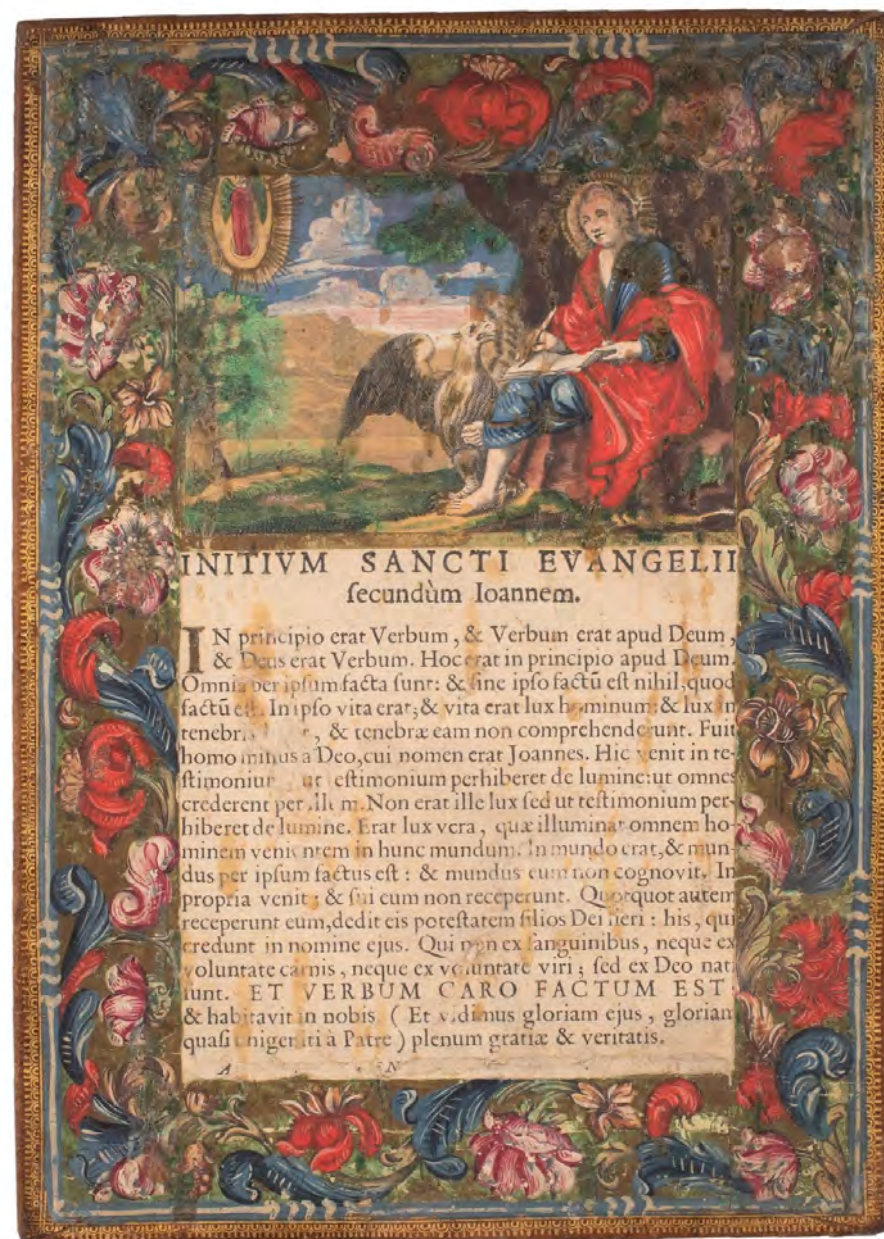 INITIVM SANCTI EVANGELII
ſecundùm Ioannem.
IN principio erat Verbum, & Verbum erat apud Deum,
& Deus erat Verbum. Hoc erat in principio apud Deum.
Omnia per ipſum facta ſunt: & ſine ipſo factū eſt nihil, quod
factū eſt. In ipſo vita erat; & vita erat lux hominum: & lux in
& tenebræ eam non comprehenderunt. Fuit
homo a Deo, cui nomen erat Joannes. Hic venit in te-
eſtimonium perhiberet de lumine: ut omnes
crederent per Non erat ille lux ſed ut teſtimonium per-
hiberet de lumine. Erat lux vera, quæ illuminat omnem ho-
minem in hunc mundum. In mundo erat, & mun-
dus per ipſum factus eſt: & mundus eum non cognovit. In
propria venit; & ſui eum non receperunt. Quotquot autem
receperunt eum, dedit eis poteſtatem filios Dei fieri: his, qui
credunt in nomine ejus. Qui non ex ſanguinibus, neque ex
voluntate carnis, neque ex voluntate viri; ſed ex Deo nati
ſunt. ET VERBUM CARO FACTUM EST:
& habitavit in nobis (Et vidimus gloriam ejus, gloriam
quaſi à Patre) plenum gratiæ & veritatis.